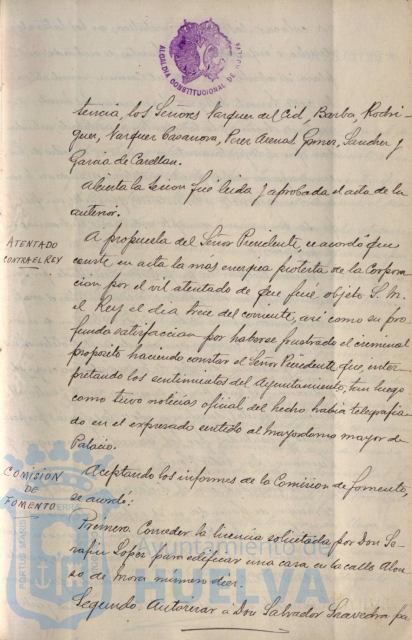 ALCALDIA CONSTITUCIONAL DE HUELVA
tencia, los Señores Vazquez del Cid, Barba, Rodri-
guez, Vazquez Casanova, Perez Arenas, Gomez, Sanchez y
Garcia de Castellan.
Abierta la sesion fué leida y aprobada el acta de la
anterior.
ATENTADO
CONTRA EL REY
A propuesta del Señor Presidente, se acordó que
conste en acta la más energica protesta de la Corpora-
cion por el vil atentado de que fué objeto S. M.
el Rey el dia trece del corriente, así como su pro-
funda satisfaccion por haberse frustrado el criminal
proposito haciendo constar el Señor Presidente que, inter-
pretando los sentimientos del Ayuntamiento, tan luego
como tuvo noticias oficial del hecho habia telegrafia-
do en el expresado sentido al Mayordomo mayor de
Palacio.
COMISION
DE
FOMENTO
Aceptando los informes de la Comision de fomento,
se acordó:
Primero. Conceder la licencia solicitada por Don Se-
rafin Lopez para edificar una casa en la calle Alon-
so de Mora numero diez.
Segundo. Autorizar a Don Salvador Saavedra pa
PORTUS MARIS
Ayuntamiento de
HUELVA